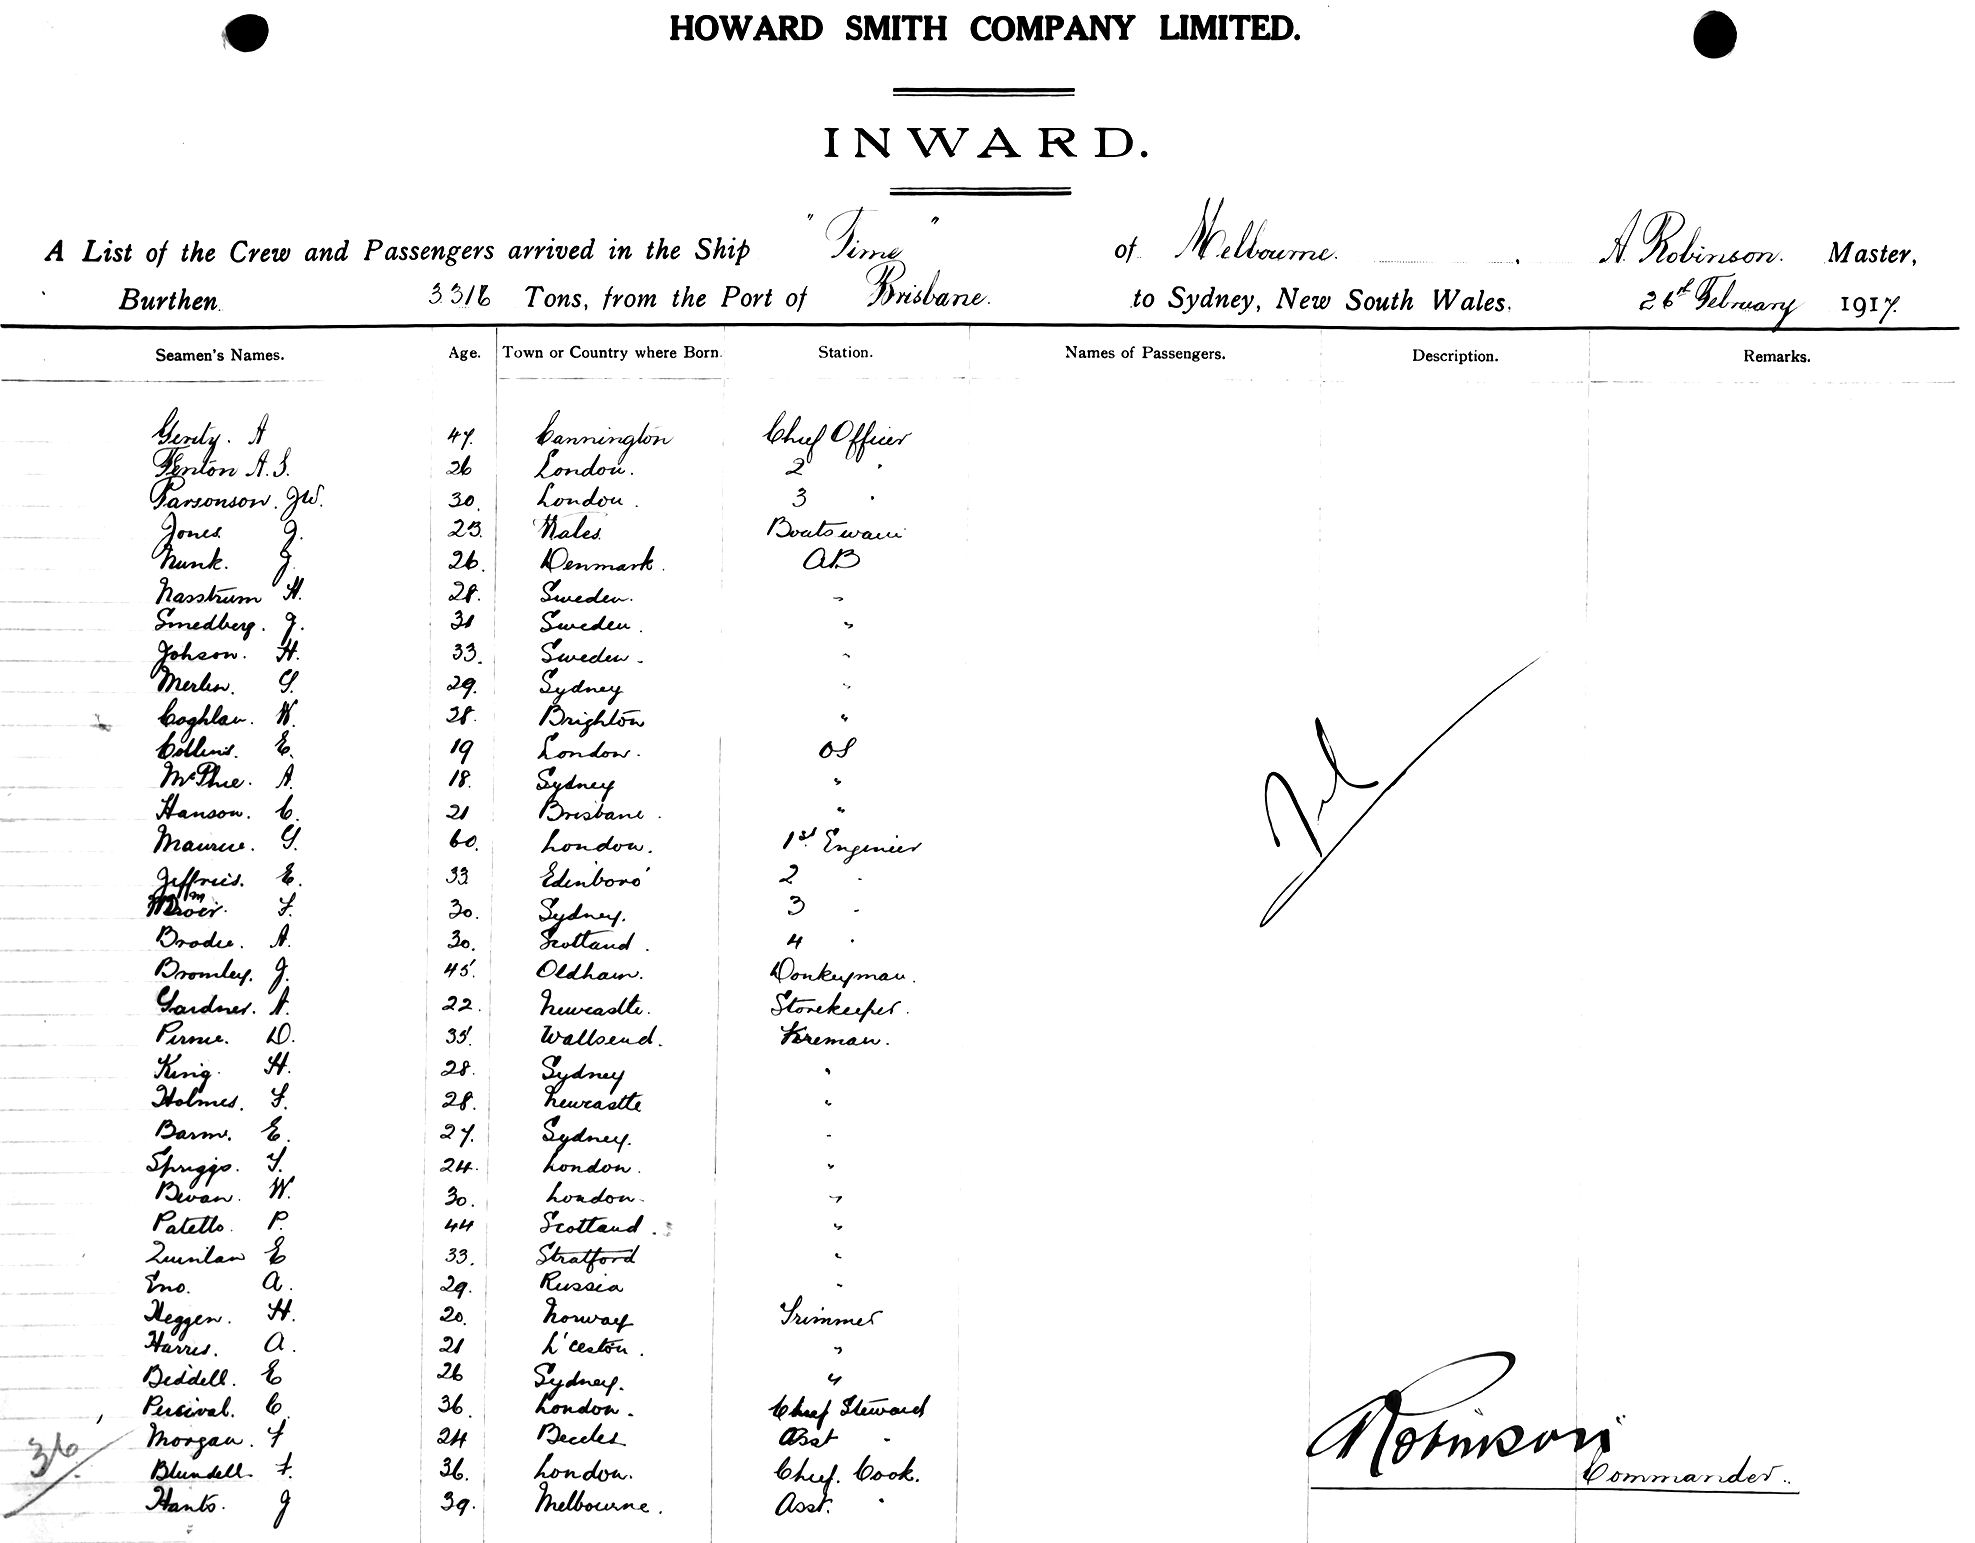 HOWARD SMITH COMPANY LIMITED.
INWARD.
A List of the Crew and Passengers arrived in the Ship "Time" of Melbourne. A. Robinson. Master,
Burthen 3316 Tons, from the Port of Brisbane. to Sydney, New South Wales. 26th February 1917.
Seamen's Names. Age. Town or Country where Born. Station. Names of Passengers. Description. Remarks.
Gerity. A 47. Cannington Chief Officer
Fenton A.S. 26 London. 2 "
Parsonson. J.W. 30. London. 3 "
Jones J. 23. Wales. Boatswain
Nunk. J. 26. Denmark. AB
Nasstrum H. 28. Sweden. "
Smedberg. J. 31 Sweden. "
Johson. H. 33. Sweden. "
Merlin. G. 29. Sydney "
Coghlan. W. 28. Brighton "
Collins. E. 19 London. OS
McPhie. A. 18. Sydney "
Hanson. C. 21 Brisbane. "
Maurice. G. 60. London. 1st Engineer
Jeffries. E. 33 Edinboro' 2 "
F. 30. Sydney. 3 "
Brodie. A. 30. Scotland. 4 "
Bromley. J. 45. Oldham. Donkeyman.
Gardner. A. 22. Newcastle. Storekeeper.
Pirnie. D. 35. Wallsend. Fireman.
King. H. 28. Sydney "
Holmes. F. 28. Newcastle "
Barm. E. 27. Sydney. "
Spriggs. T. 24. London. "
Bevan. W. 30. London. "
Patello. P. 44 Scotland. "
Quinlan E 33. Stratford "
Eno. A. 29. Russia "
Heggen. H. 20. Norway Trimmer
Harris. A. 21 L'ceston. "
Biddell. E 26 Sydney. "
Percival. C. 36. London. Chief Steward
Morgan. F 24 Beccles Asst "
Blundell. F. 36. London. Chief. Cook.
Hants. J 39. Melbourne. Asst. "
Nil
36
A Robinson
Commander.